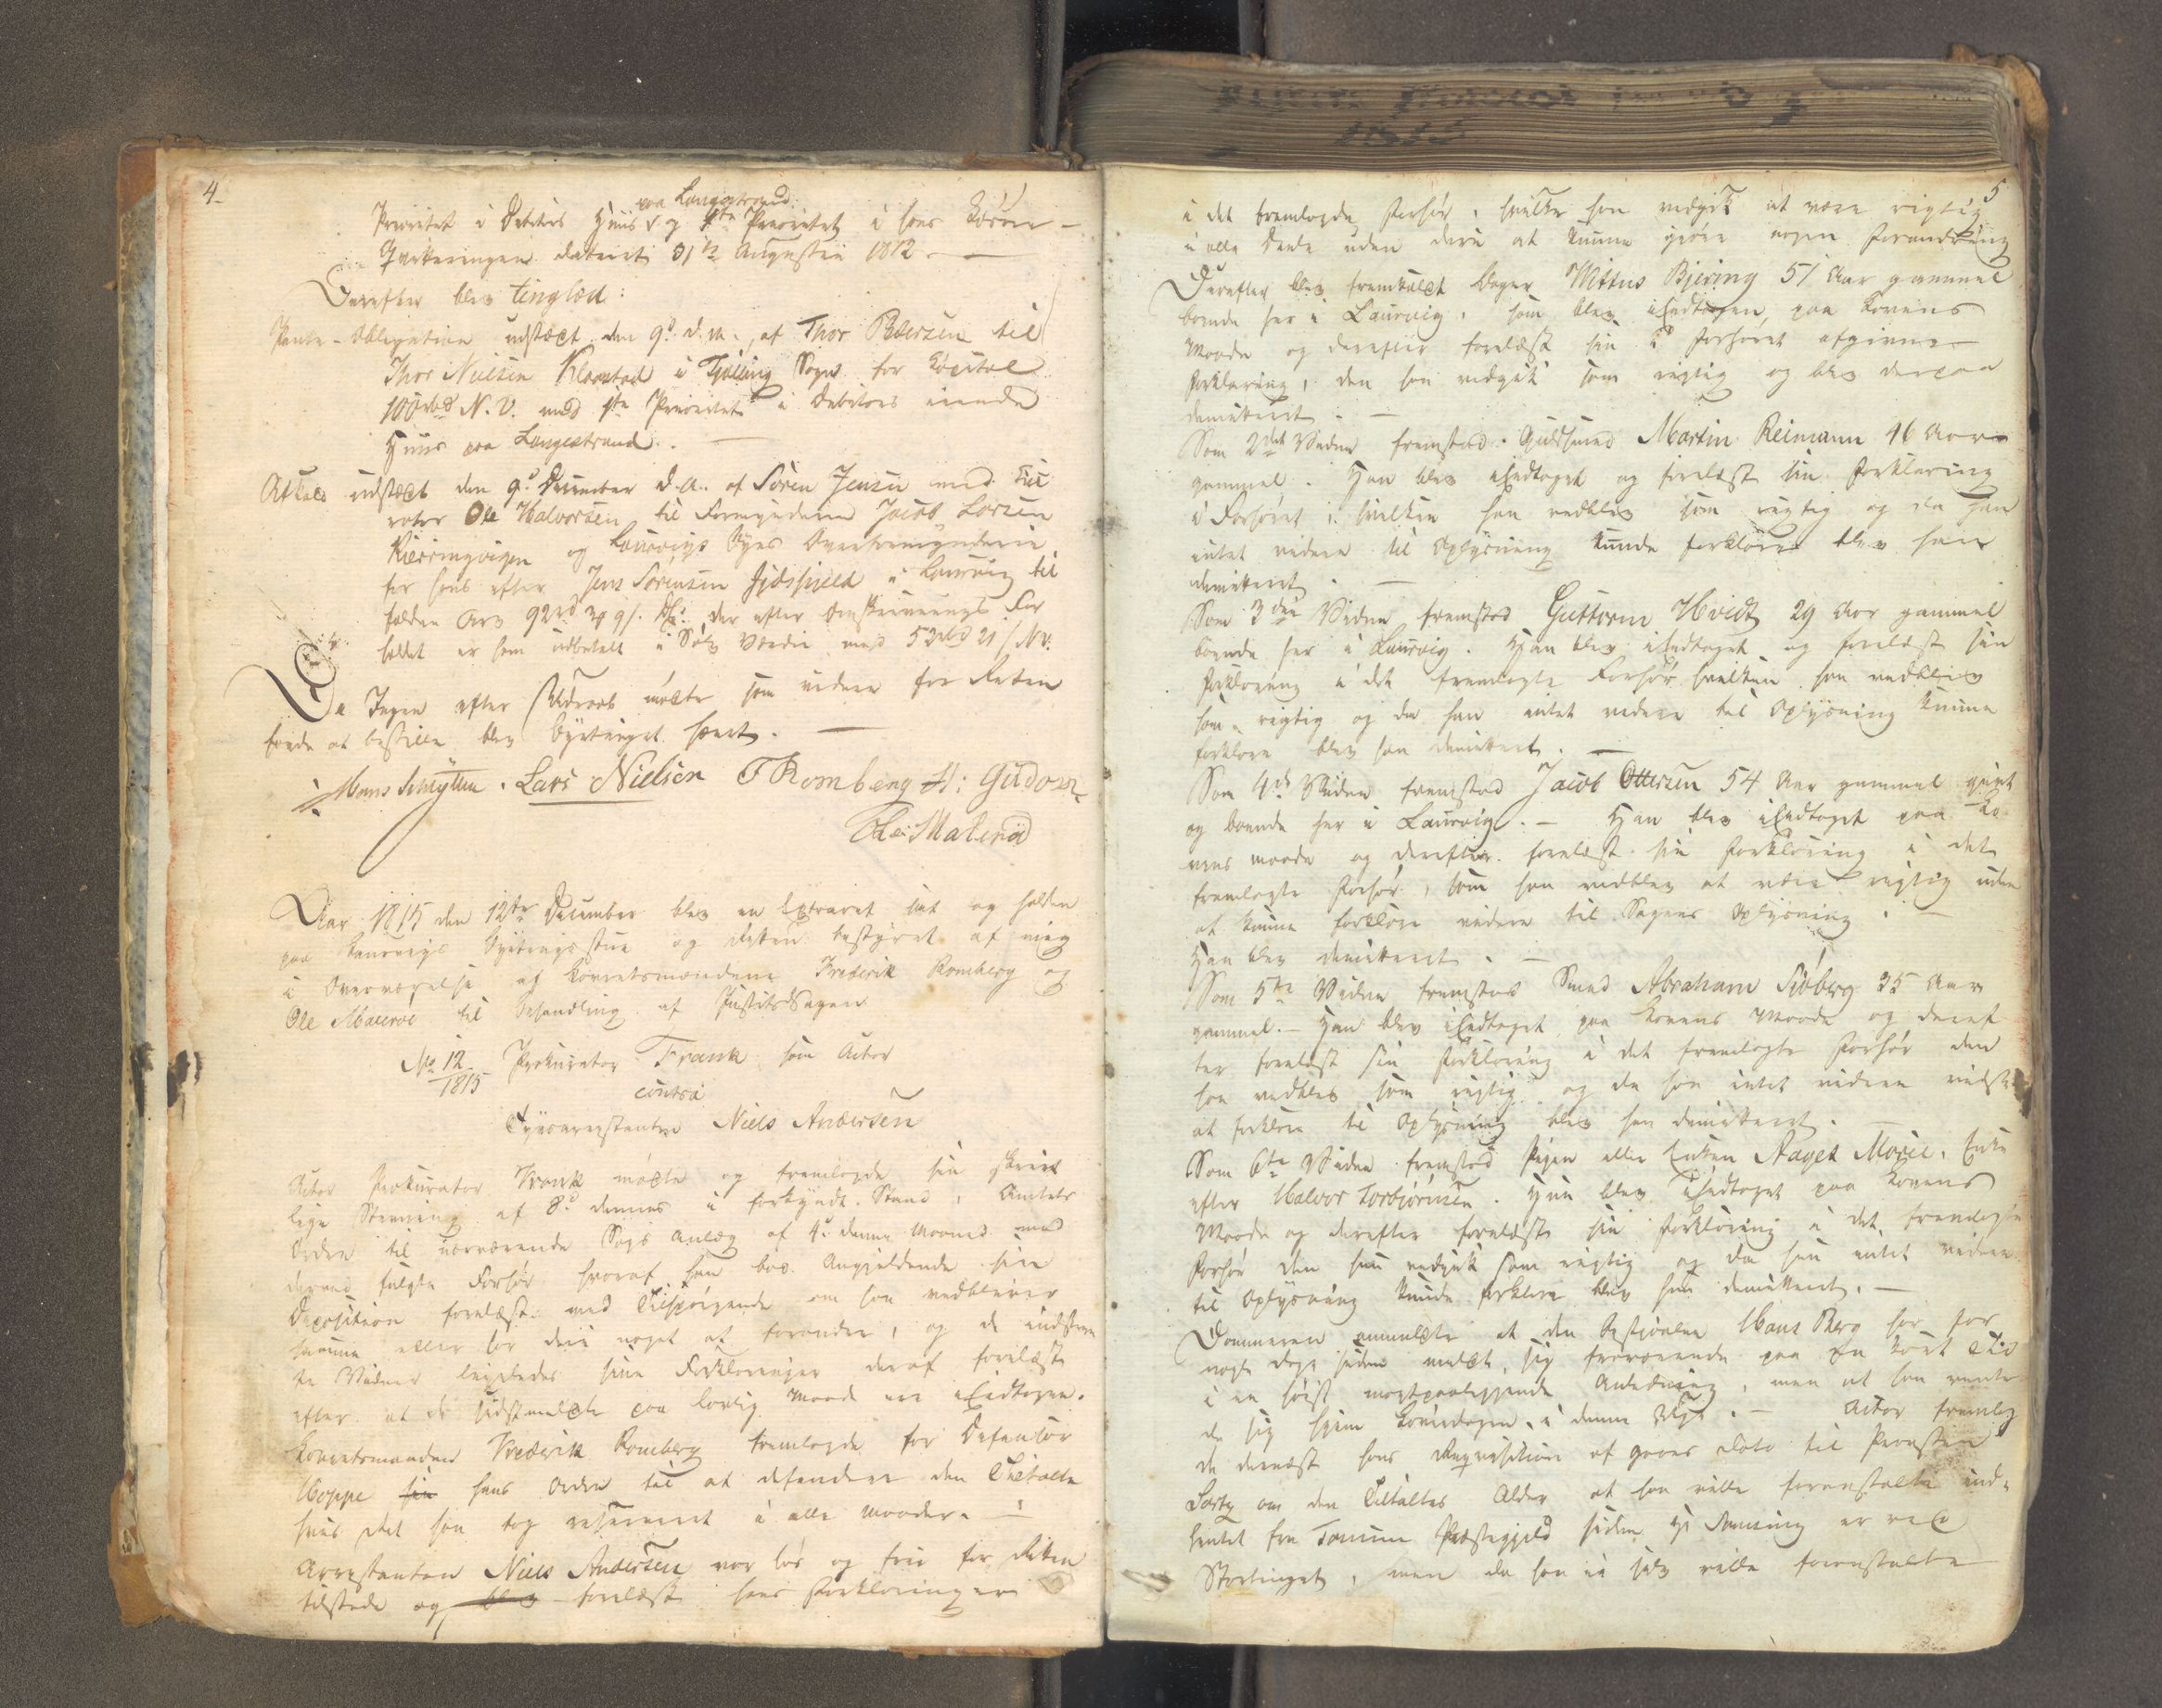 4
paa Langestrand
Prioritet i Debitors Huus og 1ste Prioritet i hans Løsøre –
Qvitteringen dateret 31te Augustii 1812. –
Derefter blev tinglæst:
Pante-Obligation udstædt den 9d d. M. af Thor Pedersen til
Thor Nielsen Klaastad i Tjølling Sogn for Capital
100 rbd N. V. med 1te Prioritet i Debitors eiende
Huus paa Langestrand. –
Afkald udstædt den 9d December d. A. af Sören Jensen med Cu
rator Ole Halvorsen til Formynderen Jacob Larsen
Kierringvigen og Laurvigs Byes Overformynderie
for hans efter Jens Sörensen i Laurvig til
falden Arv 92 rd 3 9 s. der efter Omskrivnings For
holdet er ham udbetalt i Sølv Værdie med 52 rbd 21 s N.V.
Da Ingen efter Udraab mødte som videre for Retten
havde at bestille blev Bytinget hævet. –
Hans Schlytter. Lars Nielsen F Romberg H: Gudov
Ole Malerød
Aar 1815 den 12te December blev en Extraret sat og holden
paa Laurvigs Bytingsstue og Retten bestyret af mig
i Overværelse af Lovrettesmændene Frederik Romberg og
Ole Maleröe til Behandling af Justitssagen
No 12/1815 Prokurator Frank som Actor
contra
Tyvsarrestanten Niels Andersen
Actor Prokurator Frank mødte og fremlagde sin skrivt
lige Stevning af 8d dennes i forkyndt Stand, Amtets
Ordre til nærværende Sags Anlæg af 4d denne Maaned med
derved fulgte Forhør hvoraf han bad Angjeldende sin
Deposition forelæst med Tilspørgende om han vedbliver
samme eller har deri noget at forandre, og de indstevn
te Vidner ligeledes sine Forklaringer deraf forelæste
efter at de sidstmeldte paa lovlig Maade ere eedtagne.
Lovrettesmanden Frederik Romberg fremlagde for Defensor
Hoppe hans Ordre til at defendere den Tiltalte
hvis Ret han tog reserveret i alle Maader. –
Arrestanten Niels Andersen var løs og frie for Retten
tilstede og blev forelæst hans Forklaringer
5
i det fremlagde Forhør, hvilke han vedgik at være rigtig
i alle Deele uden deri at kunne gjøre nogen Forandring
Derefter blev fremkaldt Bager Wittus Bjering 51 Aar gammel
boende her i Laurvig, som blev iEedtagen, paa Lovens
Maade og derefter forelæst sin i Forhøret afgivne
Forklaring, den han vedgik som rigtig og blev derpaa
demitteret. –
Som 2det Vidne fremstod Guldsmed Martin Reimann 46 Aar
gammel. Han blev iEedtaget og forelæst sin Forklaring
i Forhøret, hvilken han vedblev som rigtig og da han
intet videre til Oplysning kunde forklare blev han
demitteret. –
Som 3die Vidne fremstod Guttorm Hvidt 29 Aar gammel
boende her i Laurvig. Han blev iEedtaget og forelæst sin
Forklaring i det fremlagte Forhør hvilken han vedblev
som rigtig og da han intet videre til Oplysning kunne
forklare blev han demitteret. –
Som 4de Vidne fremstod Jacob Ottersen 54 Aar gammel givt
og boende her i Laurvig. – Han blev iEedtaget paa Lo
vens Maade og derefter forelæst sin Forklaring i det
fremlagte Forhør, som han vedblev at være rigtig uden
at kunne forklare videre til Sagens Oplysning. –
Han blev demitteret. –
Som 5te Vidne fremstod Smed Abraham Siöberg 35 Aar
gammel. – Han blev iEedtaget paa Lovens Maade og deref
ter forelæst sin Forklaring i det fremlagte Forhør den
han vedblev som rigtig og da han intet videre vidste
at forklare til Oplysning blev han demitteret. –
Som 6te Vidne fremstod Pigen eller Enken Aaget Marie, Enke
efter Halvor Torbjörnsen. Hun blev iEedtaget paa Lovens
Maade og derefter forelæst sin Forklaring i det fremlagte
Forhør den hun vedgik som rigtig og da hun intet videre
til Oplysning kunde forklare blev hun demitteret. –
Dommeren anmeldte at den bestjaalne Hans Berg har for
nogle Dage siden meldt, sig fraværende paa en kort Tid
i en høist magtpaaliggende Anledning, men at han vente
de sig hjem Løverdagen i denne Uge. – Actor fremlag
de dernæst hans Requisition af Gaars Dato til Provsten
Sartz om den Tiltaltes Alder at han ville foranstalte ind-
hentet fra Tanum Præstegjeld siden Hr er ved
Stortinget, men da han ei selv ville foranstalte